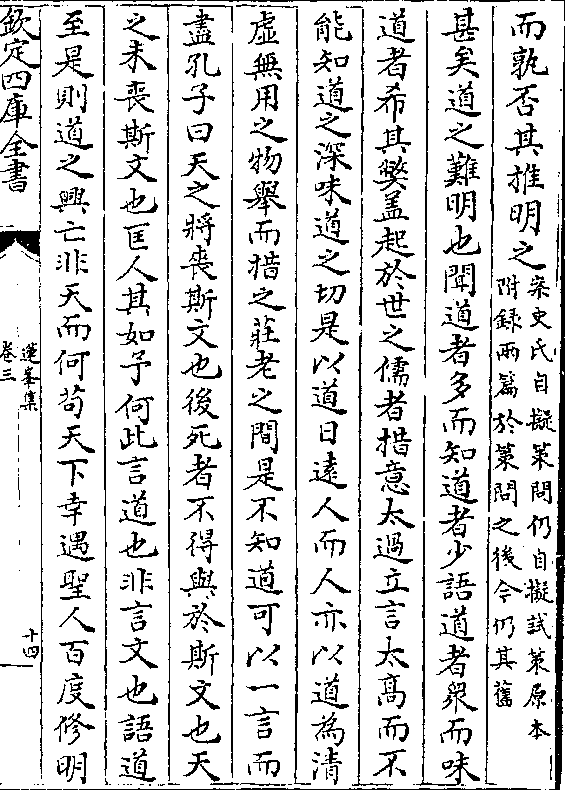 而孰否其推明之案史氏自擬策問仍自擬試策原本
附録兩篇於策問之後今仍其舊
甚矣道之難明也聞道者多而知道者少語道者衆而味
道者希其弊盖起於世之儒者措意太過立言太髙而不
能知道之深味道之切是以道日逺人而人亦以道為清
虛無用之物舉而措之莊老之間是不知道可以一言而
盡孔子曰天之將喪斯文也後死者不得與於斯文也天
之未喪斯文也匡人其如予何此言道也非言文也語道
至是則道之興亡非天而何茍天下幸遇聖人百度修明
欽定四庫全書
蓮峯集
卷三
十四